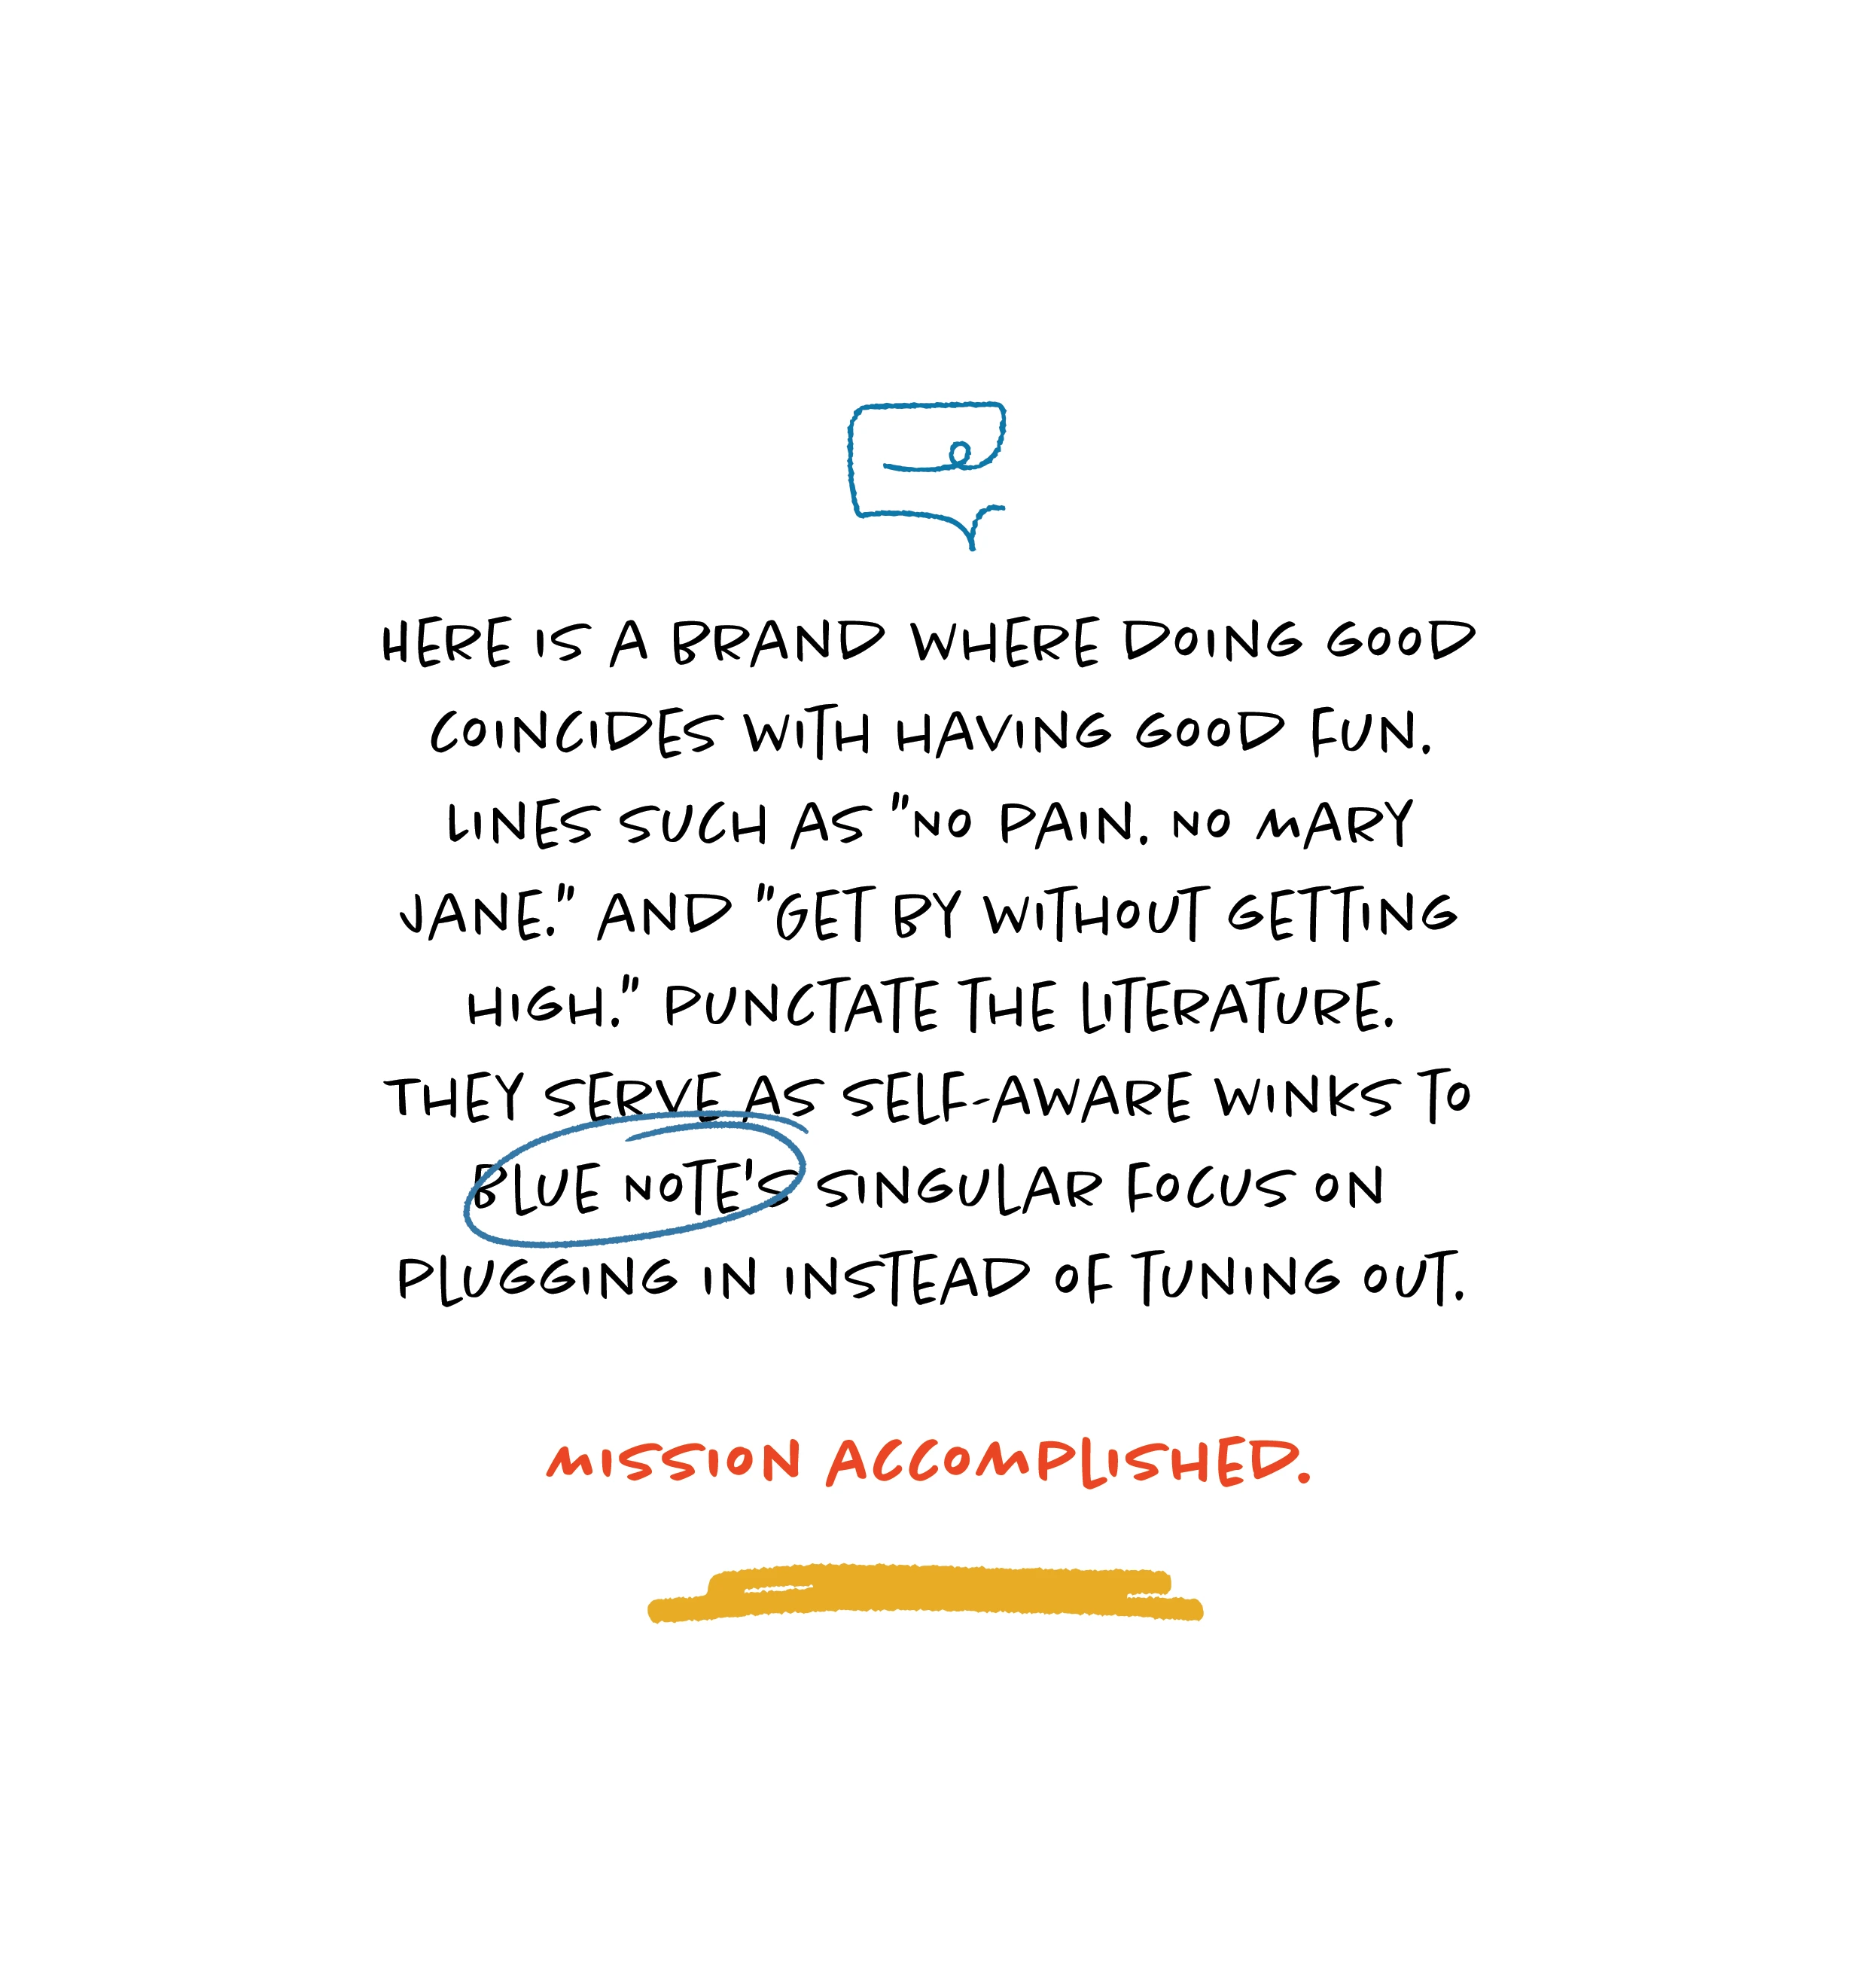 HERE IS A BRAND WHERE DOING GOOD
COINCIDES WITH HAVING GOOD FUN.
LINES SUCH AS "NO PAIN. NO MARY
JANE." AND "GET BY WITHOUT GETTING
HIGH." PUNCTATE THE LITERATURE.
THEY SERVE AS SELF-AWARE WINKS TO
BLUE NOTE'S SINGULAR FOCUS ON
PLUGGING IN INSTEAD OF TUNING OUT.
MISSION ACCOMPLISHED.